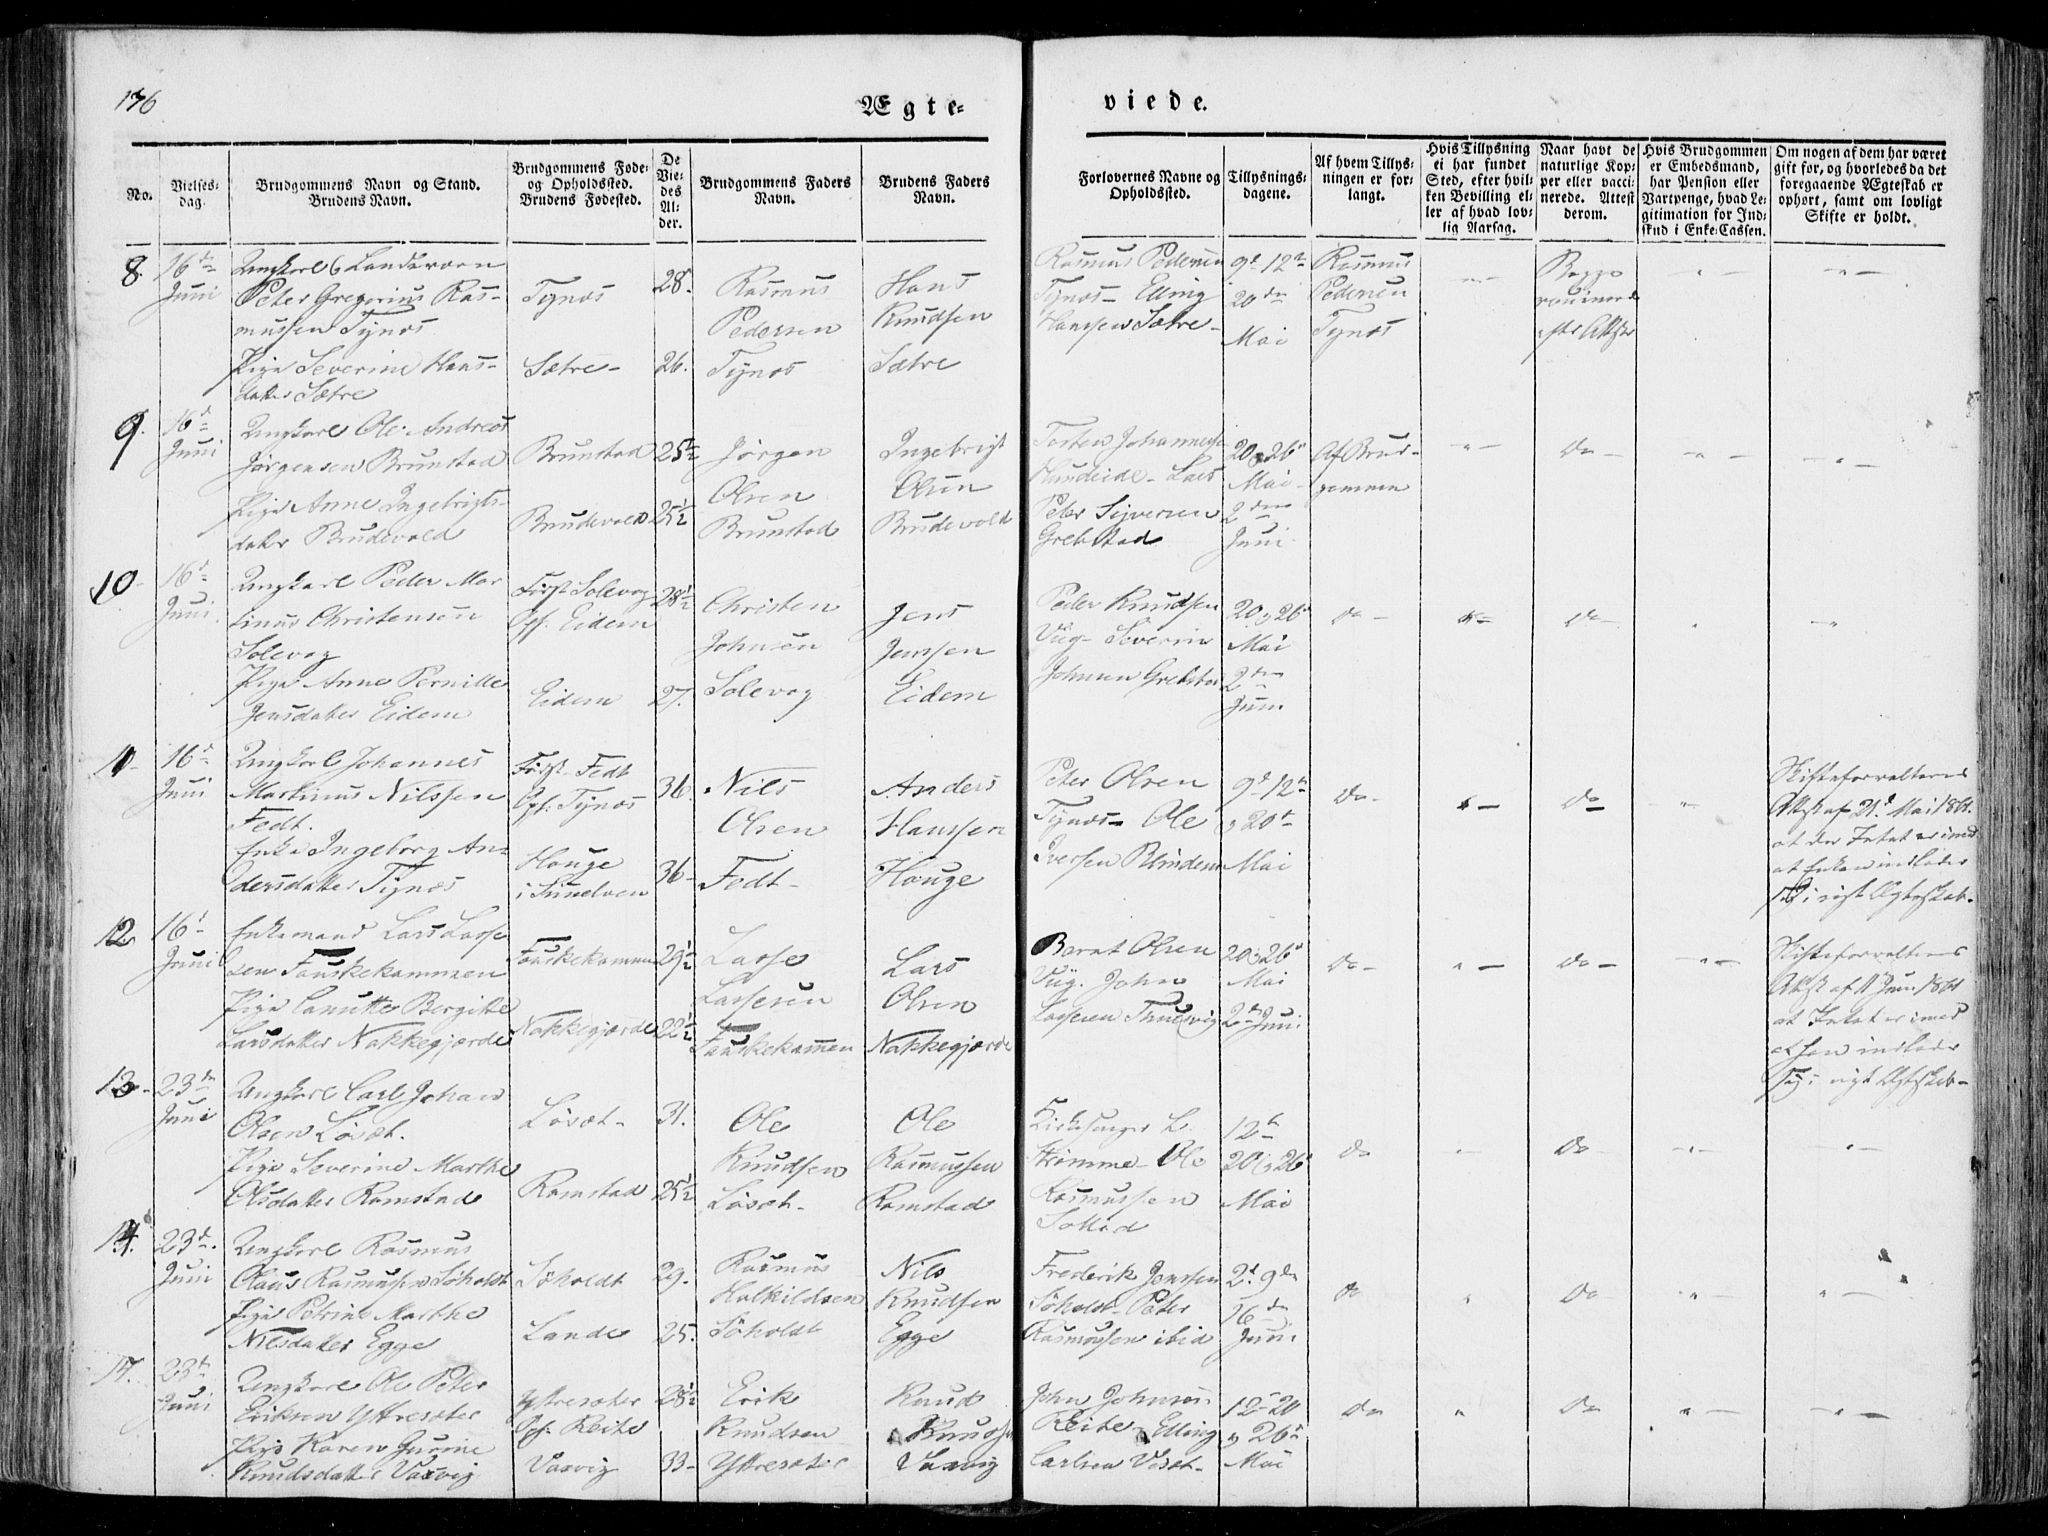 176
Ægte-
viede.
No.
Vielses-
dag.
Brudgommens Navn og Stand.
Brudens Navn.
Brudgommens Føde-
og Opholdssted.
Brudens Fødested.
De
Vie-
des
Al-
der.
Brudgommens Faders
Navn.
Brudens Faders
Navn.
Forlovernes Navne og
Opholdsted.
Tillysnings-
dagene.
Af hvem Tillys-
ningen er for-
langt.
Hvis Tillysning
ei har fundet
Sted, efter hvil-
ken Bevilling el-
ler af hvad lov-
lig Aarsag.
Naar havt de
naturlige Kop-
per eller vacci-
nerede. Attest
derom.
Hvis Brudgommen
er Embedsmand,
har Pension eller
Vartpenge, hvad Le-
gitimation for Ind-
skud i Enke-Cassen.
Om nogen af dem har været
gift før, og hvorledes da det
foregaaende Ægteskab er
ophørt, samt om lovligt
Skifte er holdt.
8.
16de
Juni
Ungkarl
Peter Gregorius Ras-
mussen Tynes
Pige Severine Hans-
datter Sætre
Tynes
Sætre
28.
26.
Rasmus
Pedersen
Tynes
Hans
Knudsen
Sætre
Rasmus Pedersen
Tynes - Elling
Hanssen Sætre
9de 12te
20de
Mai
Rasmus
Pedersen
Tynes
Begge
9.
16de
Juni
Ungkarl Ole Andreas
Jørgensen Brunstad
Pige Anne Ingebrigts-
datter Brudevold
Brunstad
Brudevold
25½
25½
Jørgen
Olsen
Brunstad
Ingebrigt
Olsen
Brudevold
Torsten Johannessen
Hundeide - Lars
Peter Syversen
Grebstad
20 26
Mai
2den
Juni
Af Brud-
gommen
do
10
16de
Juni
Ungkarl Peder Mar
tinus Christensen
Solevog
Pige Anne Pernille
Jensdatter Eidem
Født Solevog
Oph. Eidem
Eidem
28½
27.
Christen
Johnsen
Solevog
Jens
Jenssen
Eidem
Peder Knudsen
Vug - Severin
Johnsen Grebstad
20 26
Mai
2den
Juni
do
do
11
16de
Juni
Ungkarl Johannes
Martinus Nilssen
Fedt.
Enke Ingeborg An-
dersdatter Tynes
Født Fedt
Oph. Tynes
Houge
i Sunelven
36
36
Nils
Olsen
Fedt
Anders
Hanssen
Houge
Peter Olsen
Tynes - Ole
Iversen Blindem
9de 12te
20de
Mai
do
do
Skifteforvalterens
Attest af 21de Mai 1861.
at der Intet er imod
at Enken indlader
sig i nyt Ægteskab.
12
16de
Juni
Enkemand Lars Lasse
sen Fauskekammen
Pige Lanutte Bergitte
Larsdatter Nakkegjærde
Fauskekammen
Nakkegjærde
29½
22½
Lasse
Larssen
Fauskekammen
Lars
Olsen
Nakkegjærde
Bernt Olsen
Vug. John
Lassesen Thuesvig
20 26
Mai
2den Juni
do
do
Skifteforvalterens
Attest af Juni 1861
at Intet er imod
at han indlader
sig i nyt Ægteskab
13
23de
Juni
Ungkarl Carl Johan
Olsen Løset.
Pige Severine Marthe
Olsdatter Ramstad
Løset
Ramstad
31.
25½
Ole
Knudsen
Løset
Ole
Rasmussen
Ramstad
Kirkesanger L.
Strømme - Ole
Rasmussen
12te
20 26
Mai
do
do
14.
23de
Juni
Ungkarl Rasmus
Olaus Rasmussen Søholdt
Pige Petrine Marthe
Nilsdatter Egge
Søholdt
Lande
29.
25.
Rasmus
Halkildsen
Søholdt
Nils
Knudsen
Egge
Frederik Jenssen
Søholdt - Peter
Rasmussen ibid
2de 9de
16de
Juni
do
do
23de
Juni
Ungkarl Ole Peter
Eriksen Yttresæter
Pige Karen Gurine
Knudsdatter Vaxvig
Yttresæter
Oph. Reite
Vaxvig
28½
33
Erik
Knudsen
Yttresæter
Knud
Knudsen
Vaxvig
John Johnsen
Reite - Elling
Carlsen
12 20
26
Mai
do
do